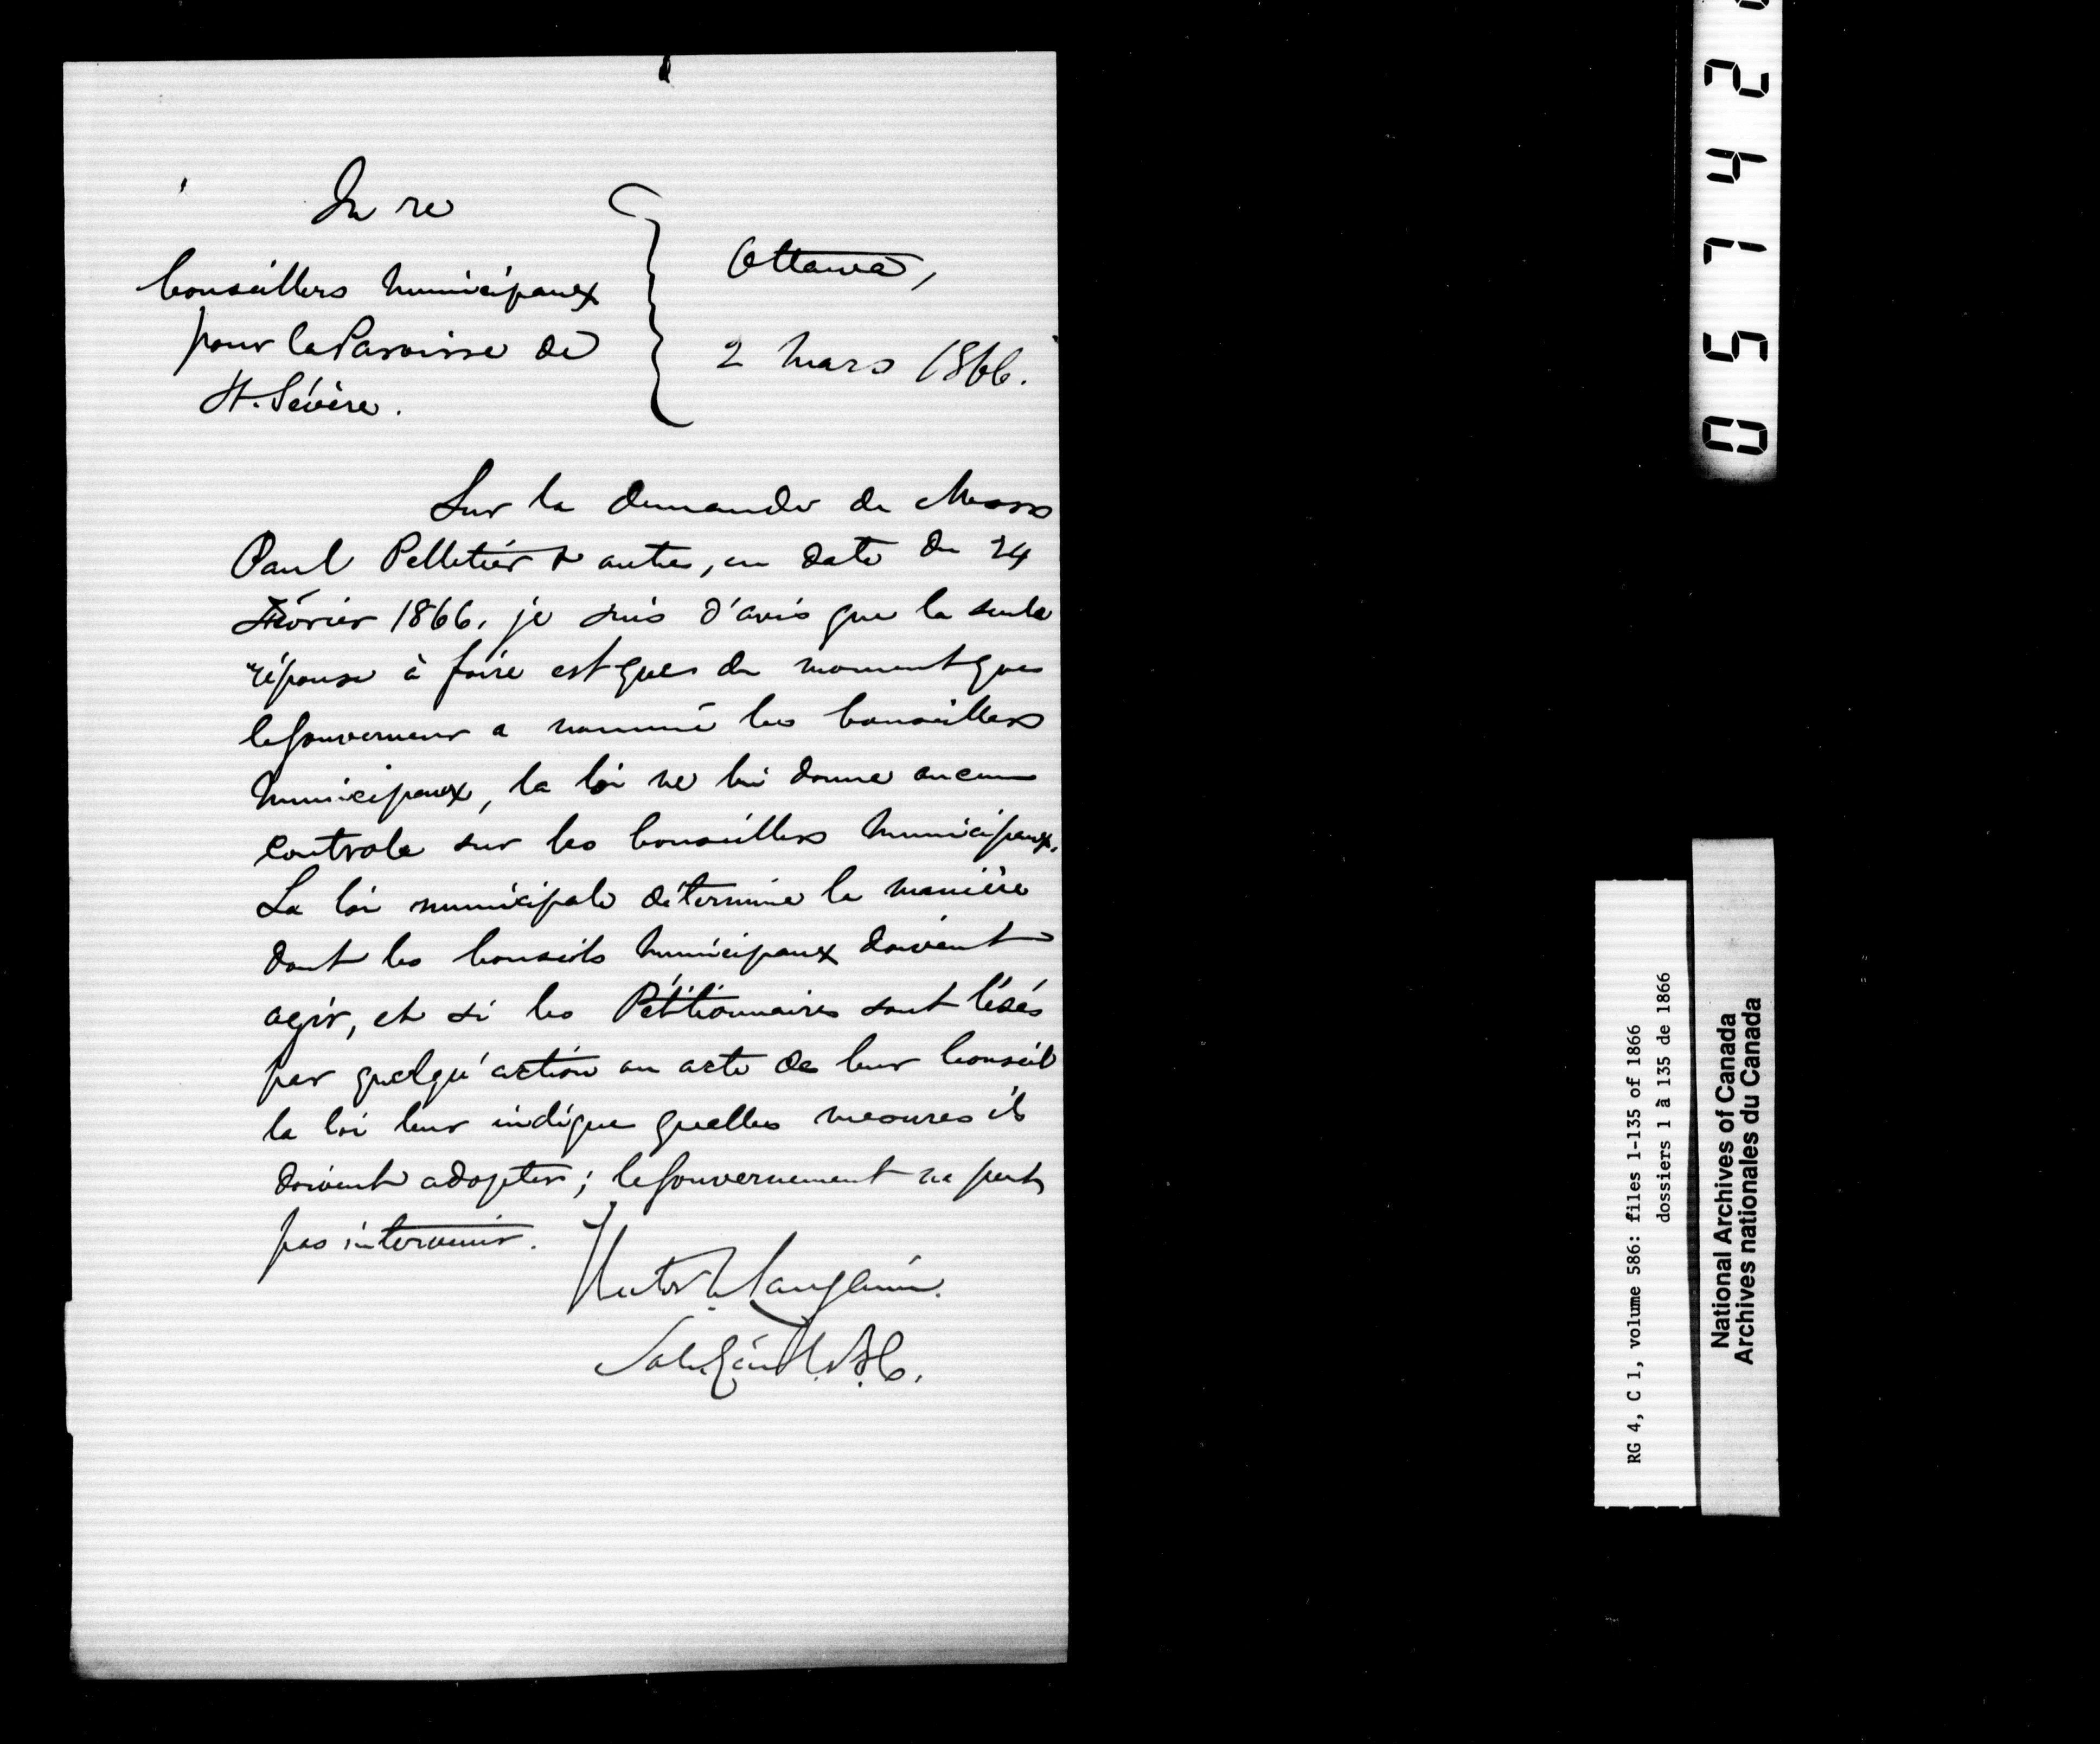 In re
Conseillers Municipaux
pour la Paroisse de
St. Sévère.
Ottawa,
2 Mars 1866.
Sur la demande de Messrs
Paul Pelletier & autres, en date du 24
Février 1866, je suis d'avis que la seule
réponse à faire est que du moment que
le Gouverneur a nommé les Conseillers
Municipaux, la loi ne lui donne aucun
controle sur les Conseillers Municipaux.
La loi municipale détermine la manière
dont les Conseils Municipaux doivent
agir, et si les Pétitionnaires sont lésés
par quelqu'action ou acte de leur Conseil
la loi leur indique quelles mesures ils
doivent adopter; le Gouvernement ne peut
pas intervenir.
Hector L. Langevin.
Sol. Gén.
05142
RG 4, C 1, volume 586: files 1-135 of 1866
dossiers 1 à 135 de 1866
National Archives of Canada
Archives nationales du Canada